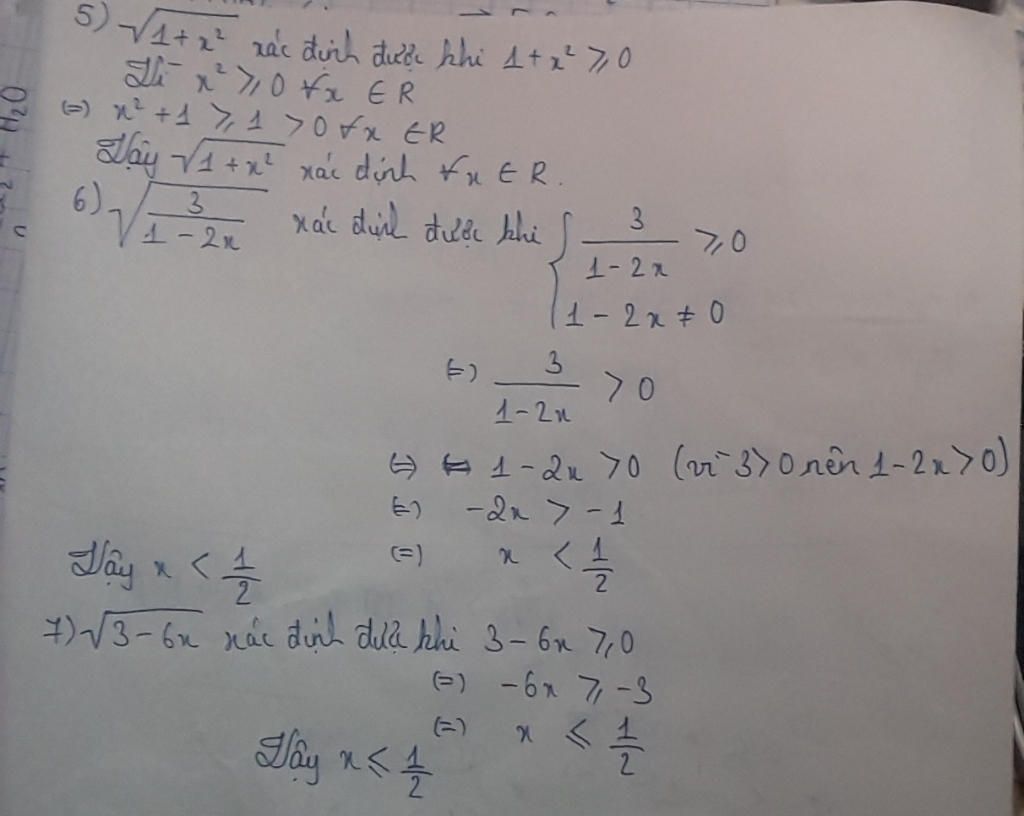 5) √(1+x²) xác định được khi 1+x² ⩾ 0
Vì x² ⩾ 0 ∀x ∈ R
(=) x² + 1 ⩾ 1 > 0 ∀x ∈ R
Vậy √(1+x²) xác định ∀x ∈ R.
6) √(3/(1-2x)) xác định được khi { 3/(1-2x) ⩾ 0
1-2x ≠ 0
(=) 3/(1-2x) > 0
(=) 1-2x > 0 (vì 3>0 nên 1-2x>0)
(=) -2x > -1
Vậy x < 1/2 (=) x < 1/2
7) √(3-6x) xác định được khi 3-6x ⩾ 0
(=) -6x ⩾ -3
(=) x ⩽ 1/2
Vậy x ⩽ 1/2